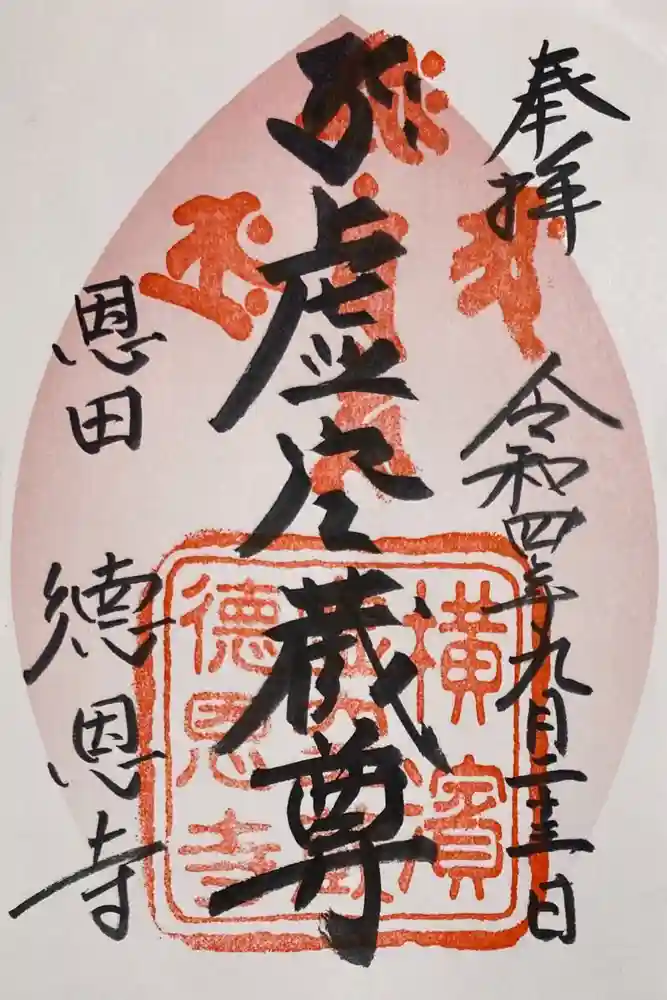 奉拝 令和四年九月二十三日
虚空蔵尊
恩田 徳恩寺
横濱
德恩寺